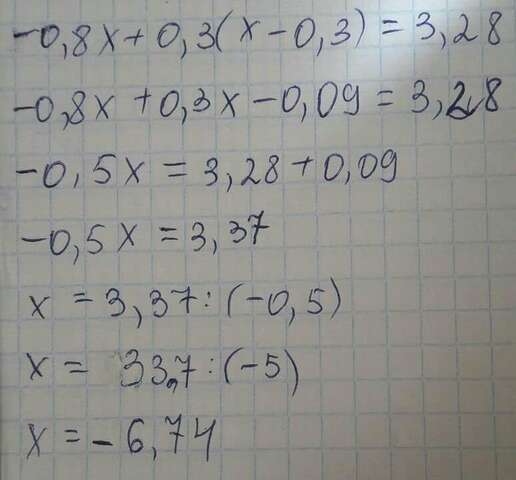 -0,8x+0,3(x-0,3)=3,28
-0,8x+0,3x-0,09=3,28
-0,5x=3,28+0,09
-0,5x=3,37
x=3,37:(-0,5)
x=33,7:(-5)
x=-6,74